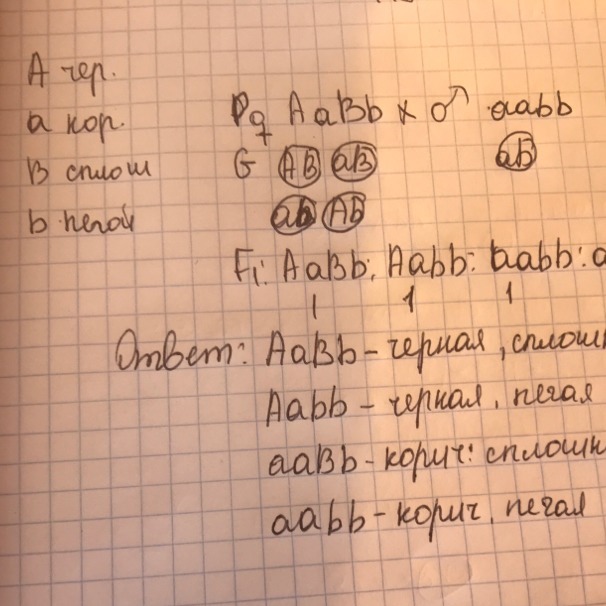 A чер.
a кор.
B сплош
b пегой
P ♀ AaBb × ♂ aabb
G AB aB ab
ab Ab
F₁: AaBb: Aabb: aabb: a
1 1 1
Ответ: AaBb - черная, сплошн
Aabb - черная, пегая
aaBb - корич: сплошн
aabb - корич, пегая